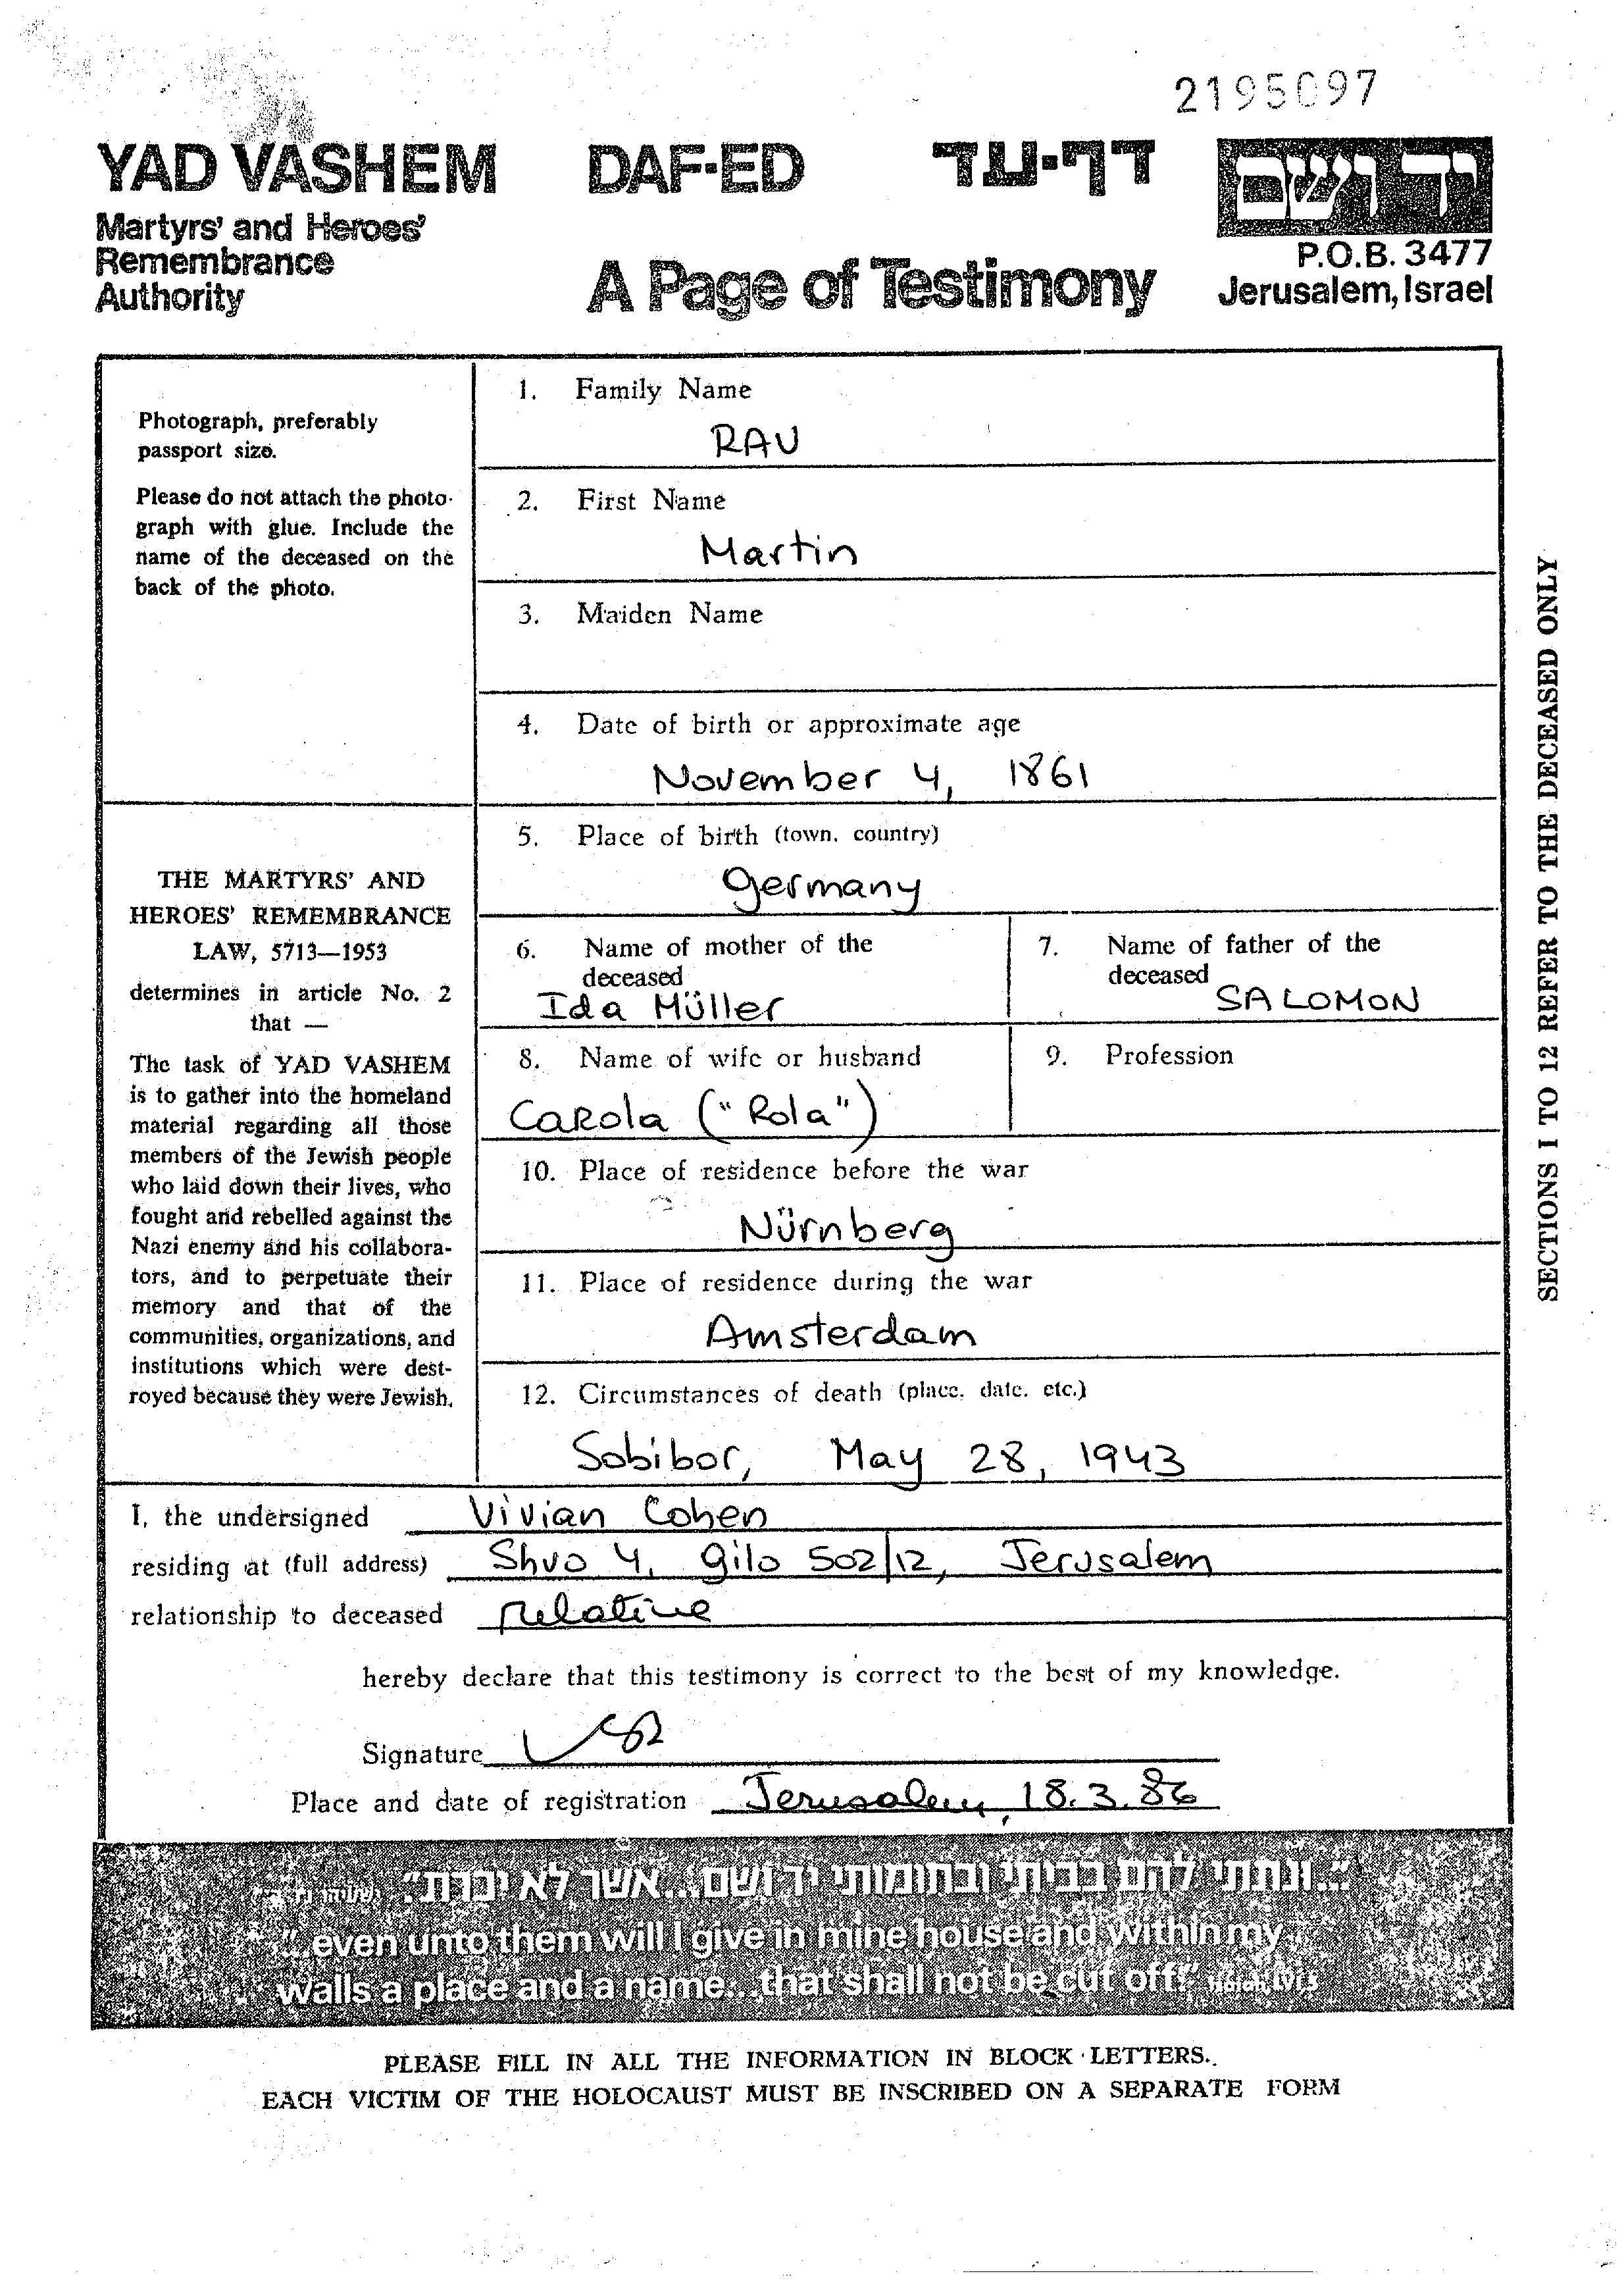 2195097
YAD VASHEM DAF-ED דף-עד
יד ושם
Martyrs' and Heroes'
Remembrance
Authority
A Page of Testimony
P.O.B. 3477
Jerusalem, Israel
Photograph, preferably
passport size.
Please do not attach the photo-
graph with glue. Include the
name of the deceased on the
back of the photo.
THE MARTYRS' AND
HEROES' REMEMBRANCE
LAW, 5713—1953
determines in article No. 2
that —
The task of YAD VASHEM
is to gather into the homeland
material regarding all those
members of the Jewish people
who laid down their lives, who
fought and rebelled against the
Nazi enemy and his collabora-
tors, and to perpetuate their
memory and that of the
communities, organizations, and
institutions which were dest-
royed because they were Jewish.
1. Family Name
RAU
2. First Name
Martin
3. Maiden Name
4. Date of birth or approximate age
November 4, 1861
5. Place of birth (town, country)
Germany
6. Name of mother of the
deceased
Ida Müller
7. Name of father of the
deceased
SALOMON
8. Name of wife or husband
Carola ("Rola")
9. Profession
10. Place of residence before the war
Nürnberg
11. Place of residence during the war
Amsterdam
12. Circumstances of death (place, date, etc.)
Sobibor, May 28, 1943
SECTIONS 1 TO 12 REFER TO THE DECEASED ONLY
I, the undersigned Vivian Cohen
residing at (full address) Shvo 4, Gilo 502/12, Jerusalem
relationship to deceased relative
hereby declare that this testimony is correct to the best of my knowledge.
Signature
Place and date of registration Jerusalem, 18.3.86
"...ונתתי להם בביתי ובחומותי יד ושם...אשר לא יכרת."
"...even unto them will I give in mine house and within my
walls a place and a name...that shall not be cut off." Isaiah, lvi, 5
PLEASE FILL IN ALL THE INFORMATION IN BLOCK LETTERS.
EACH VICTIM OF THE HOLOCAUST MUST BE INSCRIBED ON A SEPARATE FORM